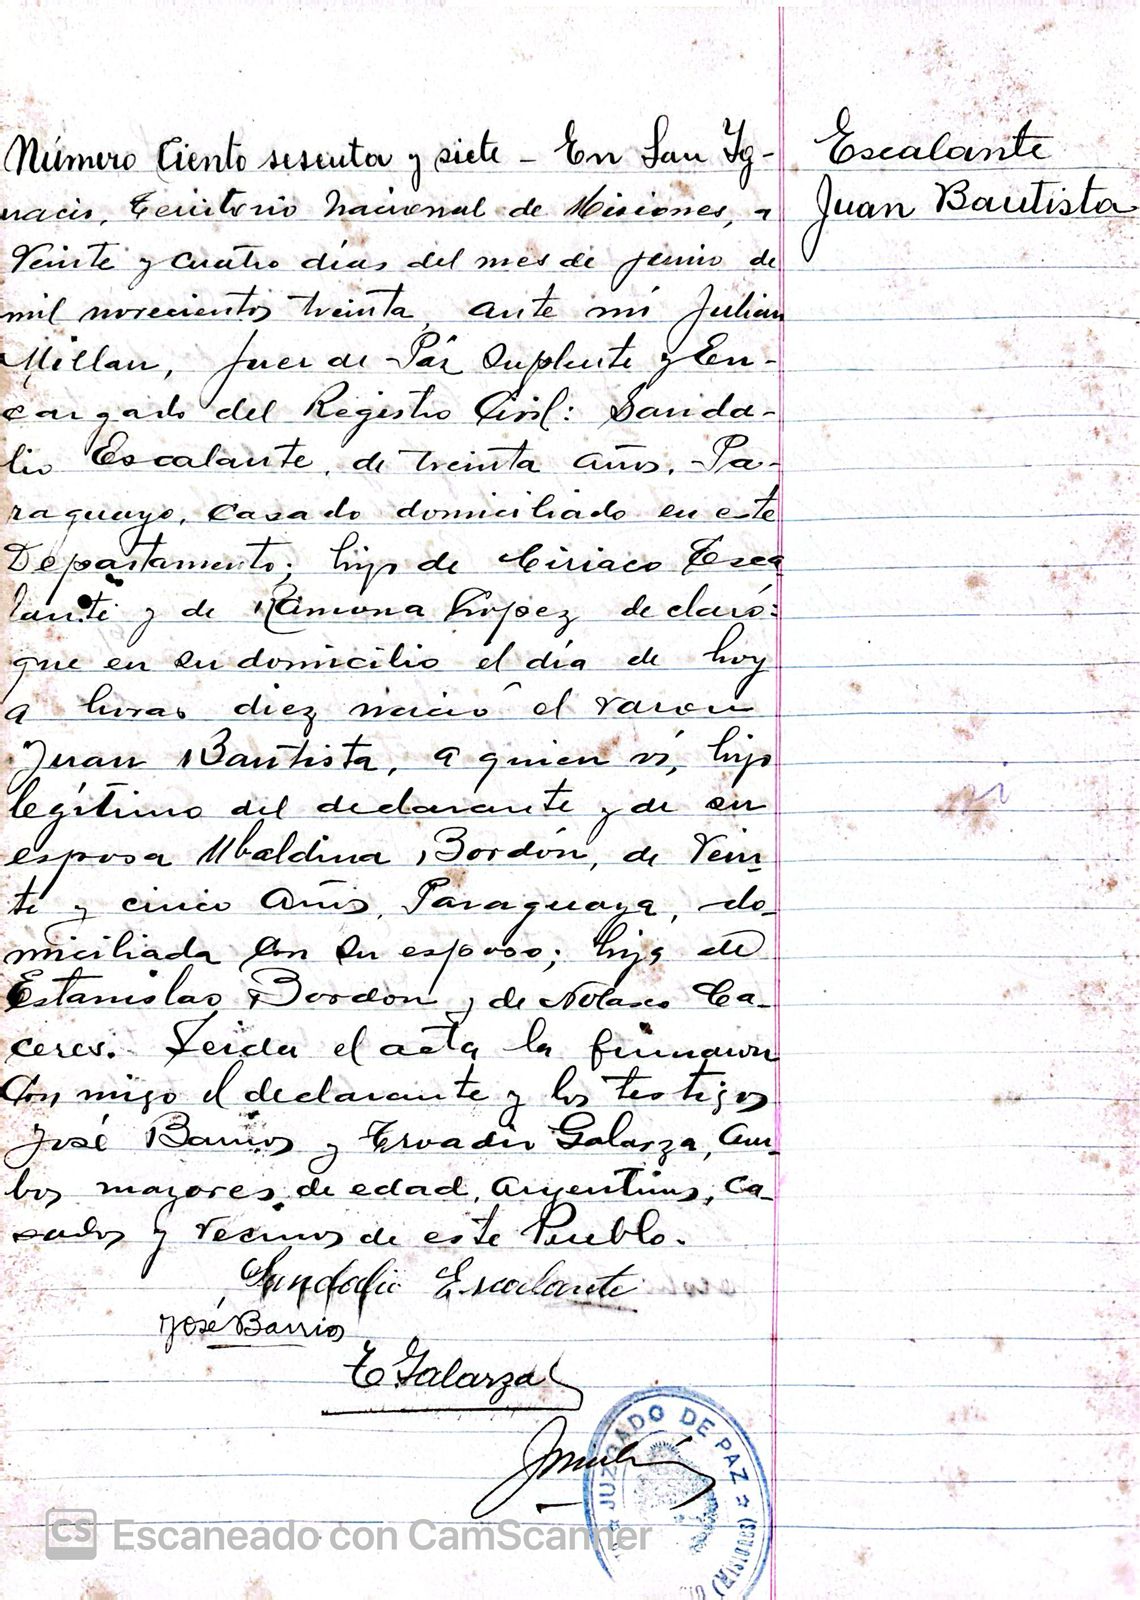 Número Ciento sesenta y siete - En San Ig-
nacio, Territorio Nacional de Misiones, a
veinte y cuatro días del mes de junio de
mil novecientos treinta, ante mí Julian
Millan, Juez de Páz Suplente y En-
cargado del Registro Civil: Sanda-
lio Escalante, de treinta años, Pa-
raguayo, casado domiciliado en este
Departamento; hijo de Ciriaco Esca
lante y de Ramona López declaró:
que en su domicilio el día de hoy
a horas diez nació el varon
Juan Bautista, a quien ví, hijo
legítimo del declarante y de su
esposa Ubaldina Bordón, de vein-
te y cinco años, Paraguaya, do-
miciliada con su esposo; hija de
Estanislao Bordon y de Nolasco Ca-
ceres. Leida el acta la firmaron
con migo el declarante y los testigos
José Barrios y Galarza, am-
bos mayores de edad, argentinos, ca-
sados y vecinos de este Pueblo.
Sandalio Escalante
José Barrios
E Galarza
Escalante
Juan Bautista
JUZGADO DE PAZ
CS Escaneado con CamScanner